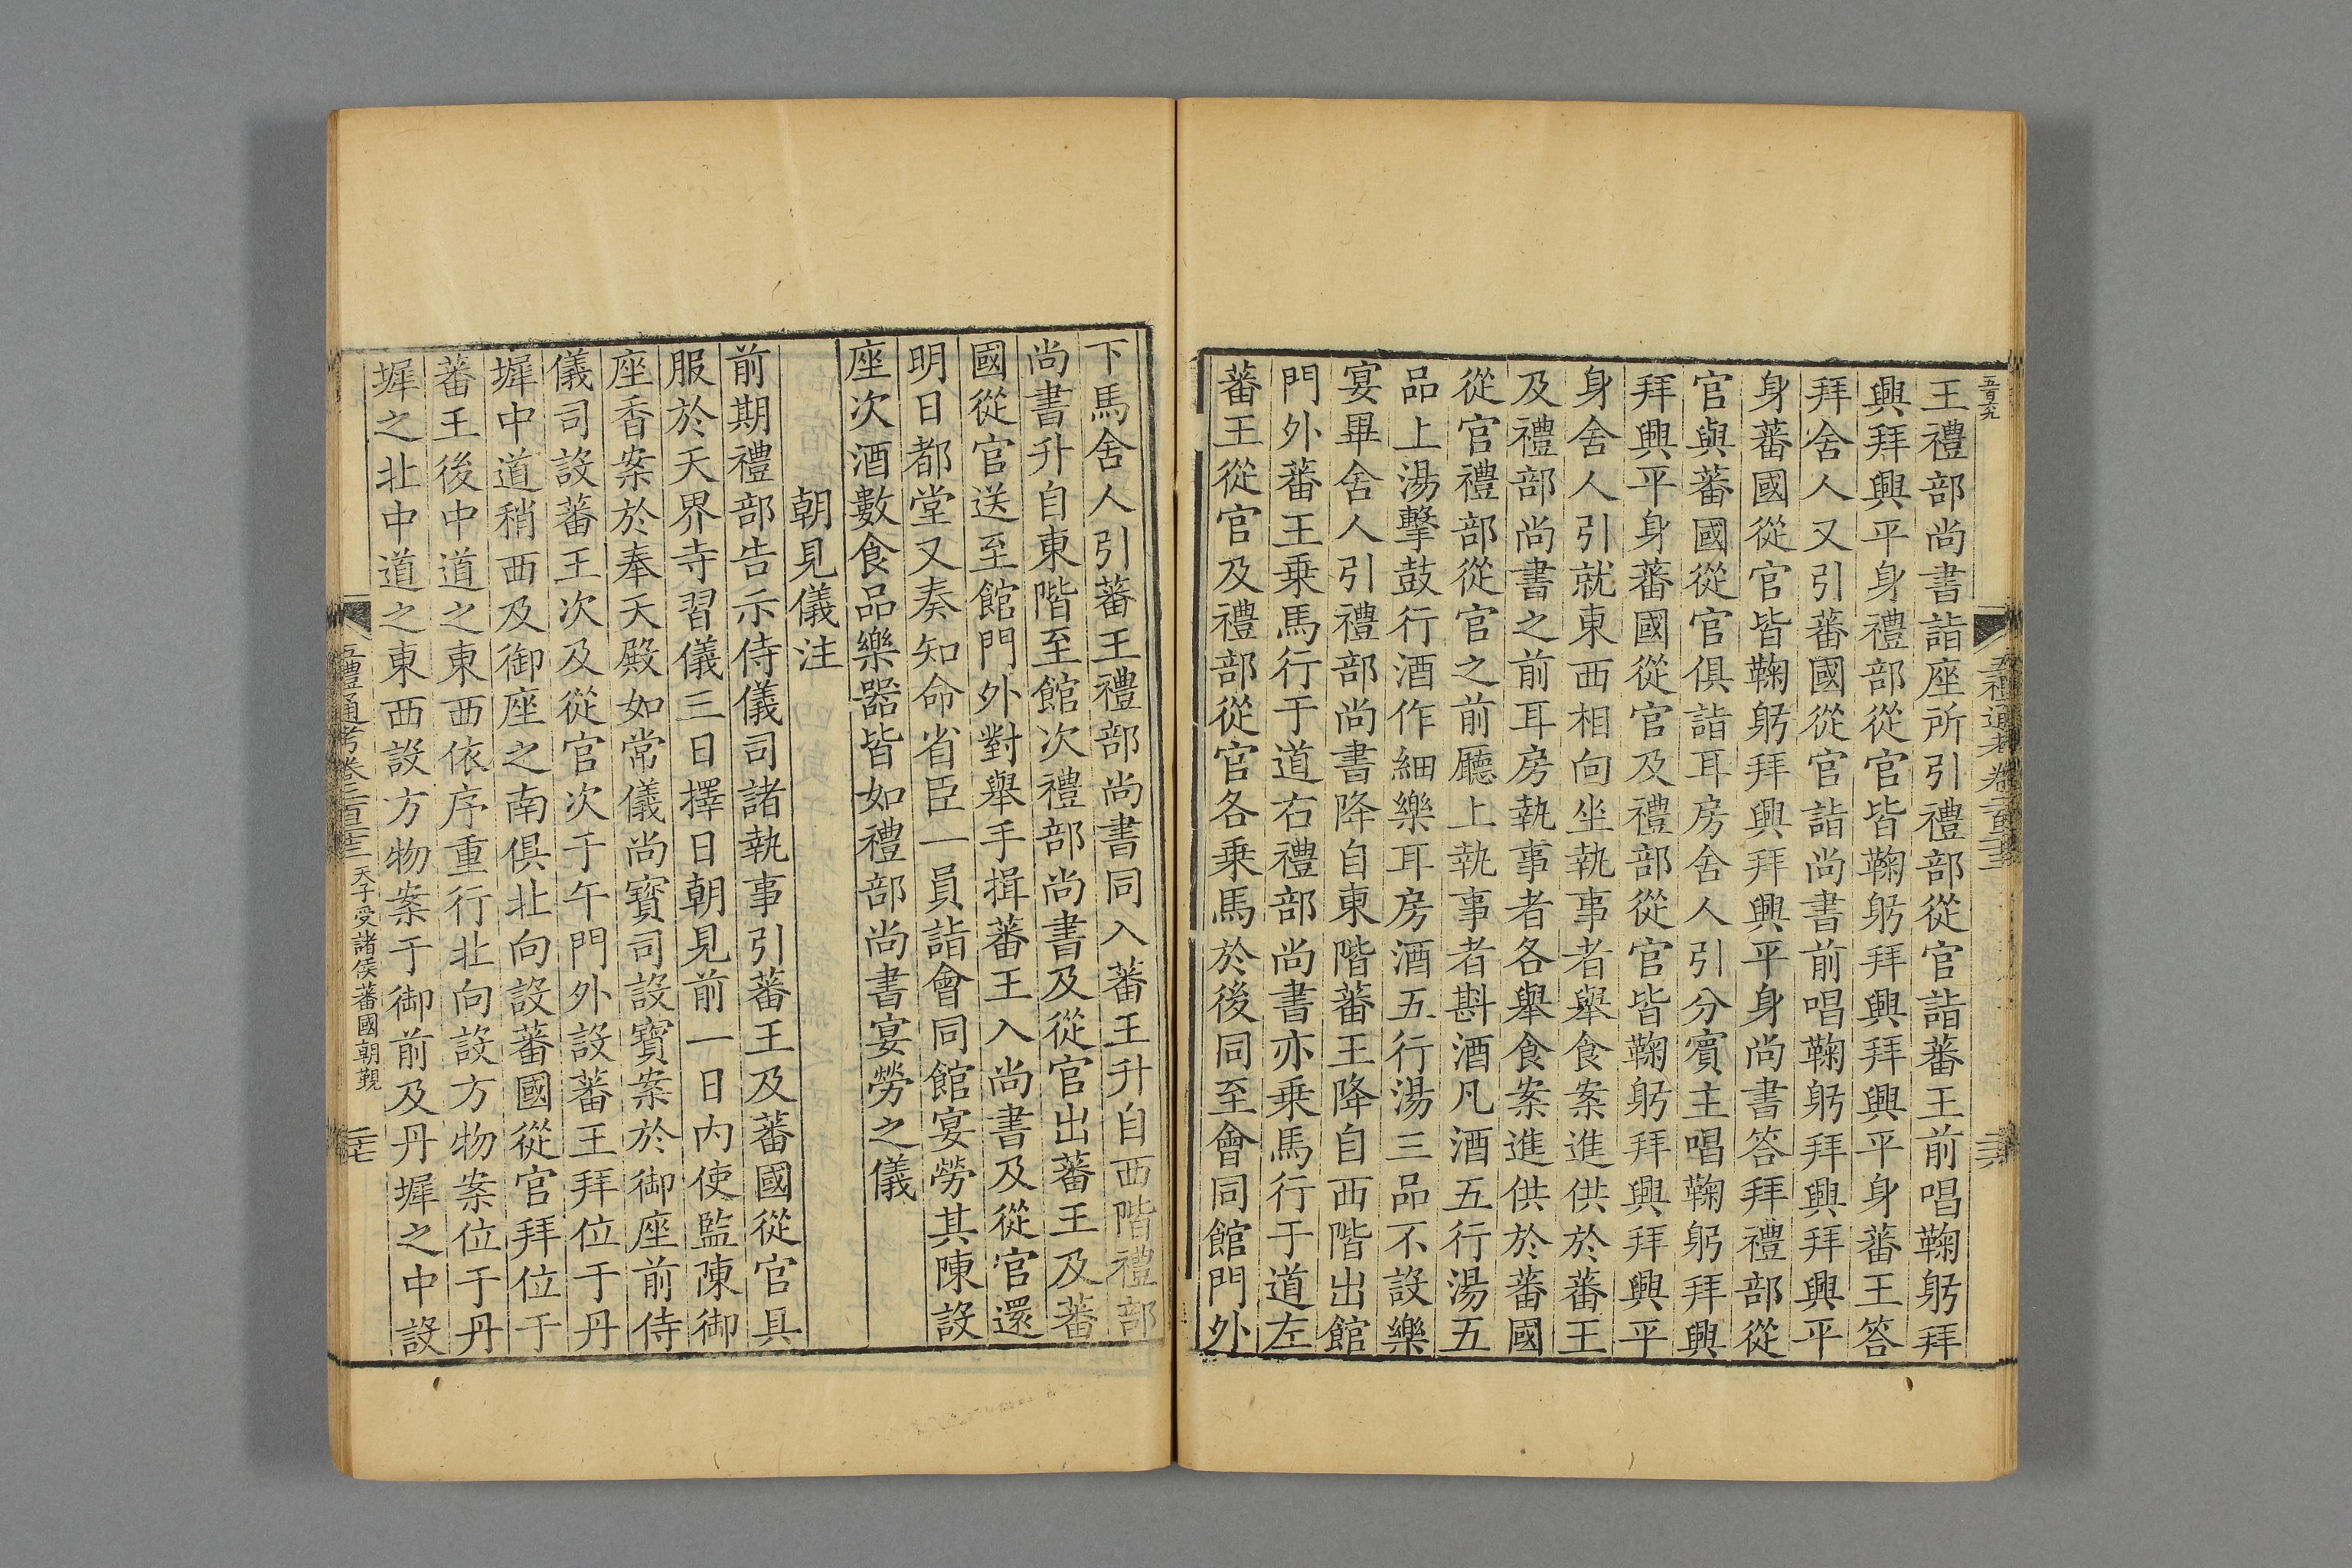 王禮部尚書詣座所引禮部從官詣蕃王前唱鞠躬拜
興拜興平身禮部從官皆鞠躬拜興拜興平身蕃王答
拜舍人又引蕃國從官詣尚書前唱鞠躬拜興拜興平
身蕃國從官皆鞠躬拜興拜興平身尚書答拜禮部從
官與蕃國從官俱詣耳房舍人引分賓主唱鞠躬拜興
拜興平身蕃國從官及禮部從官皆鞠躬拜興拜興平
身舍人引就東西相向坐執事者舉食案進供於蕃王
及禮部尚書之前耳房執事者各舉食案進供於蕃國
從官禮部從官之前廳上執事者斟酒凡酒五行湯五
品上湯擊鼓行酒作細樂耳房酒五行湯三品不設樂
宴畢舍人引禮部尚書降自東階蕃王降自西階出館
門外蕃王乗馬行于道右禮部尚書亦乗馬行于道左
蕃王從官及禮部從官各乗馬於後同至會同館門外
下馬舍人引蕃王禮部尚書同入蕃王升自西階禮部
尚書升自東階至館次禮部尚書及從官出蕃王及蕃
國從官送至館門外對舉手揖蕃王入尚書及從官還
明日都堂又奏知命省臣一員詣會同館宴勞其陳設
座次酒數食品樂器皆如禮部尚書宴勞之儀
朝見儀注
前期禮部告示侍儀司諸執事引蕃王及蕃國從官具
服於天界寺習儀三日擇日朝見前一日內使監陳御
座香案於奉天殿如常儀尚寶司設寶案於御座前侍
儀司設蕃王次及從官次于午門外設蕃王拜位于丹
墀中道稍西及御座之南俱北向設蕃國從官拜位于
蕃王後中道之東西依序重行北向設方物案位于丹
墀之北中道之東西設方物案于御前及丹墀之中設
五禮通考卷二百二十三 天子受諸侯蕃國朝覲 二十七